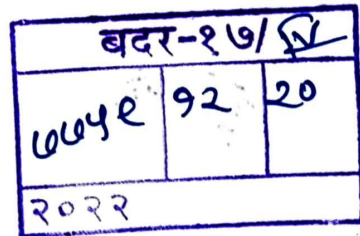 बदर-१७/
७७५९ १२ २०
२०२२